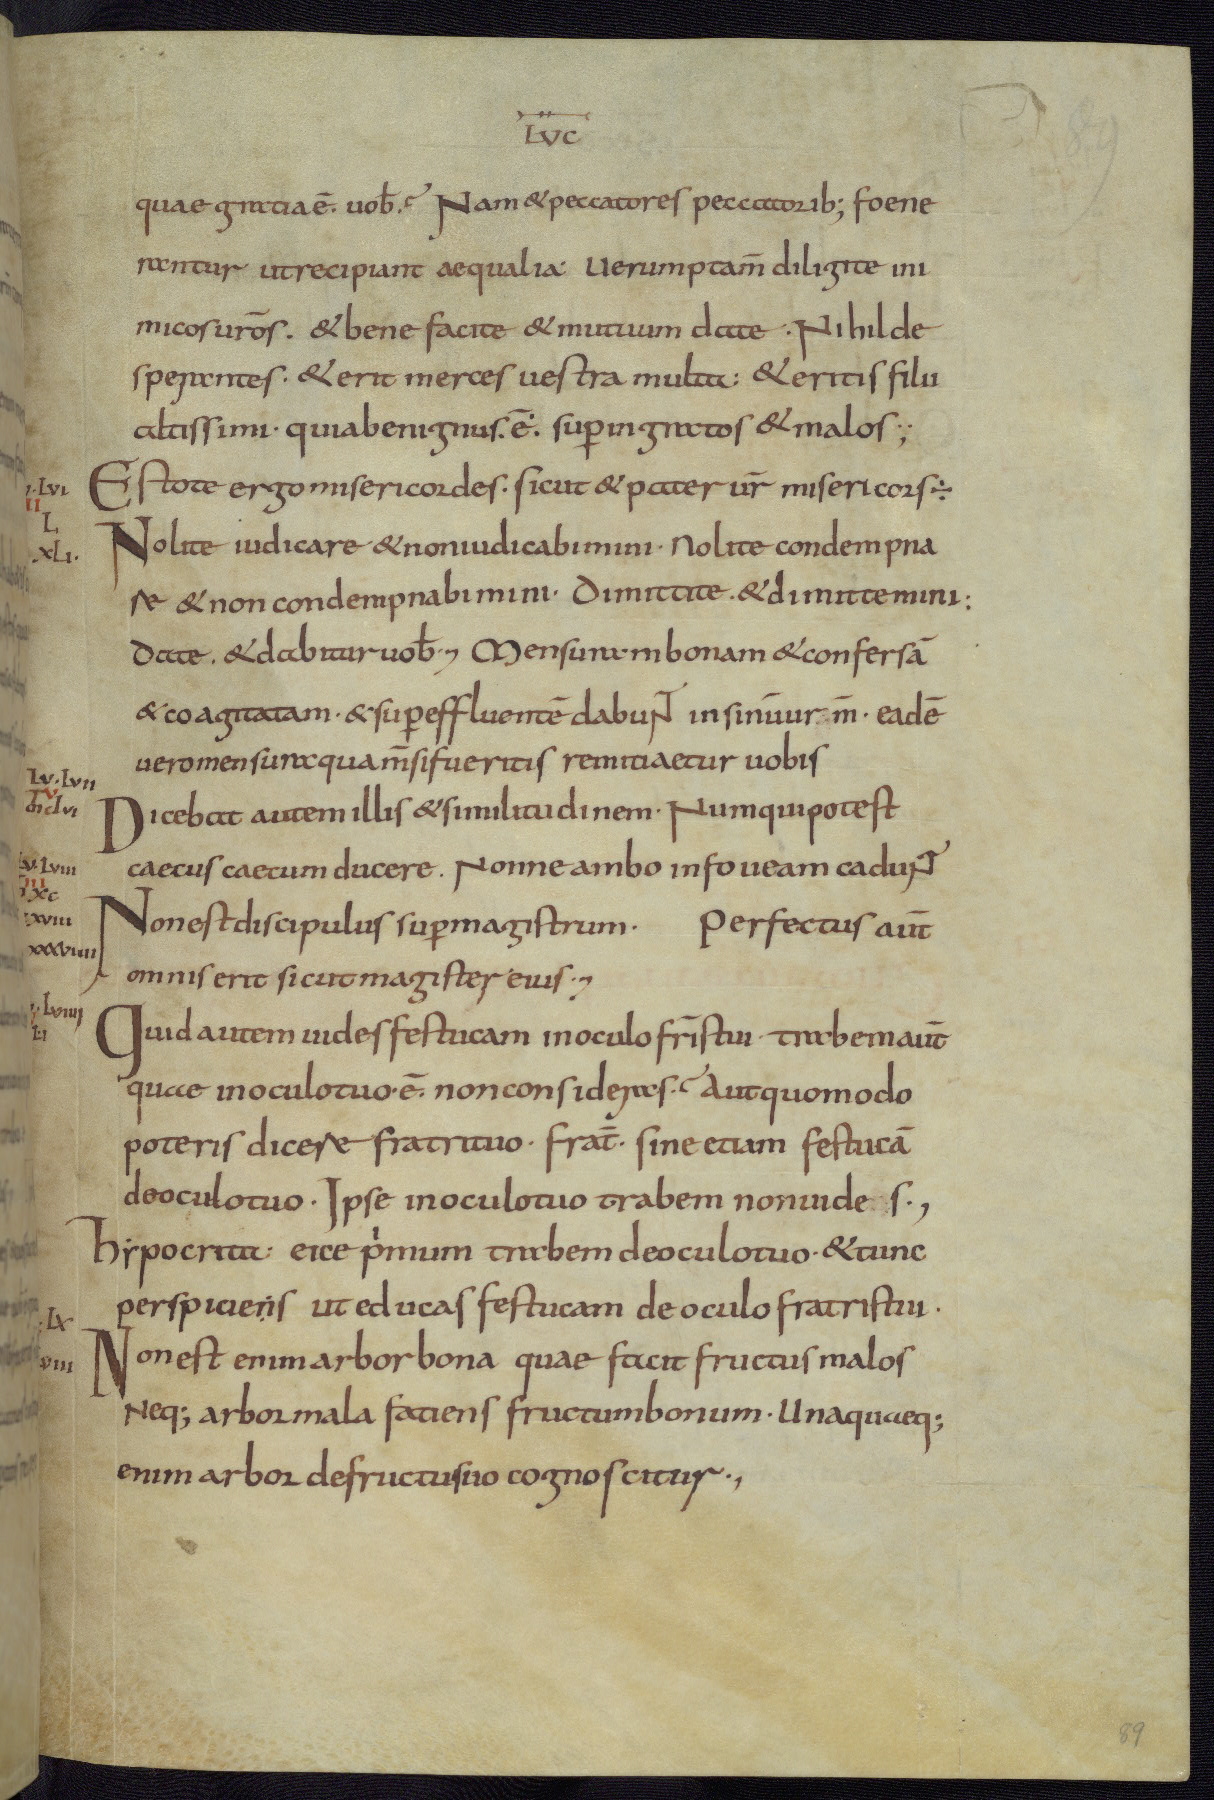 LUC
89
quae gratia ē. uob̄. Nam & peccatores peccatorib; foene
rantur ut recipiant aequalia: Uerumptam̄ diligite ini
micos ur̄os. & bene facite & mutuum date. Nihil de
sperantes. & erit merces uestra multa: & eritis filii
altissimi. quia benignus. ē. sup̄ ingratos & malos;
Estote ergo misericordes. sicut & pater ur̄ misericors
Nolite iudicare & non iudicabimini. Nolite condempna
re & non condempnabimini. Dimittite. & dimittemini:
Date. & dabitur uob̄. Mensuram bonam & confersā
& coagitatam. & sup̄effluentē dabuNT in sinū ur m̄. eadē
uero mensura qua m̄si fueritis remitiaetur uobis
Dicebat autem illis & similitudinem. Numqui potest
caecus caecum ducere. Nonne ambo in foueam caduNT
Non est discipulus sup̄ magistrum. Perfectus aut̄
omnis erit sicut magister eius.
Quid autem uides festucam in oculo fr̄is tui. trabem aut̄
quae in oculo tuo. ē. non consideras. Aut quomodo
poteris dicere fratri tuo. frat̄. sine etiam festucā
de oculo tuo. Ipse in oculo tuo trabem non uide s.
hypocrita: eice p̄mum trabem de oculo tuo. & tunc
perspiciens ut educas festucam de oculo fratris tui.
Non est enim arbor bona quae facit fructus malos
Neq; arbor mala fatiens fructum bonum. Unaquaeq;
enim arbor de fructu suo cognoscitur.
LVI
II
L
XLI.
LV. LVII
V
LVI
LVIII
III
XC
XVIII
XXXVIIII
LVIIII
LI
LX
VIII
89